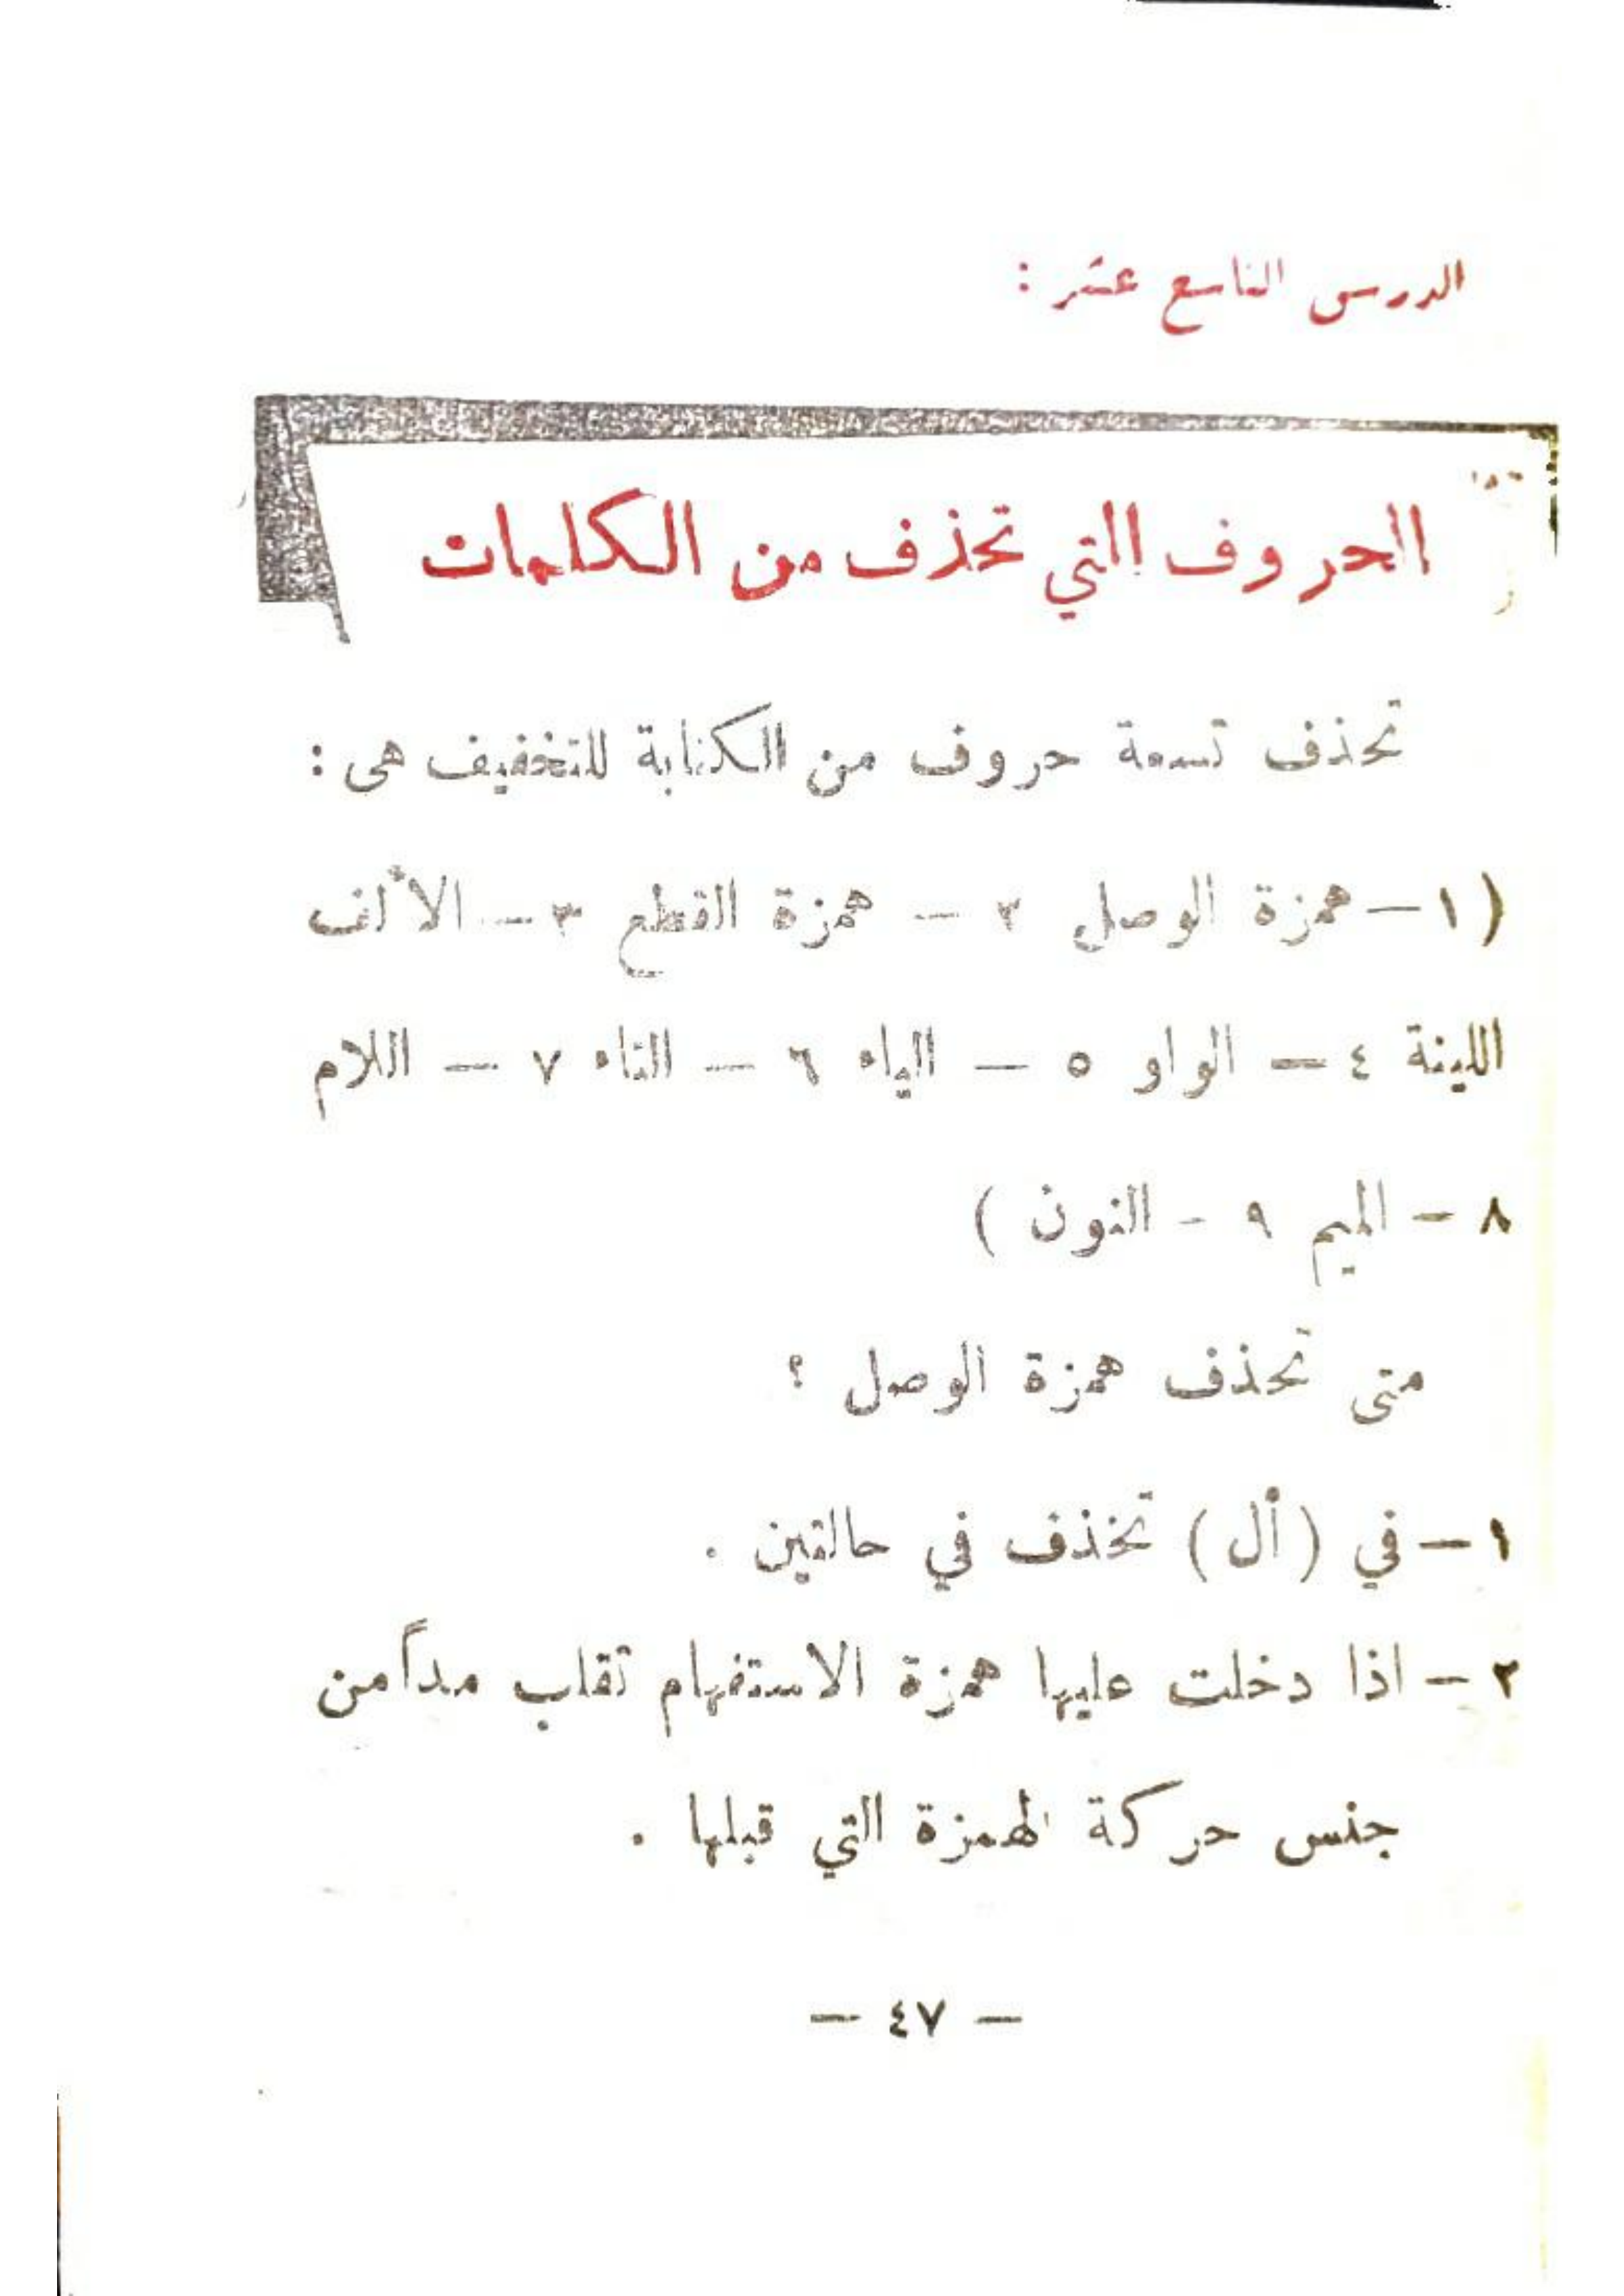 الدرس التاسع عشر :
الحروف التي تحذف من الكلمات
تحذف تسعة حروف من الكتابة للتخفيف هى :
( ١ – همزة الوصل ٢ – همزة القطع ٣ – الألف
اللينة ٤ – الواو ٥ – الياء ٦ – التاء ٧ – اللام
٨ – الميم ٩ - النون )
متى تحذف همزة الوصل ؟
١ – في ( أل ) تخذف في حالتين .
٢ – اذا دخلت عليها همزة الاستفهام تقلب مداً من
جنس حركة الهمزة التي قبلها .
– ٤٧ –